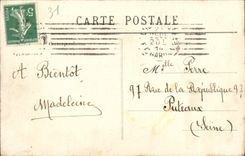 31
CARTE POSTALE
A Bientôt
Madeleine
Mlle
97 Rue de la République 97
Puteaux
(Seine)